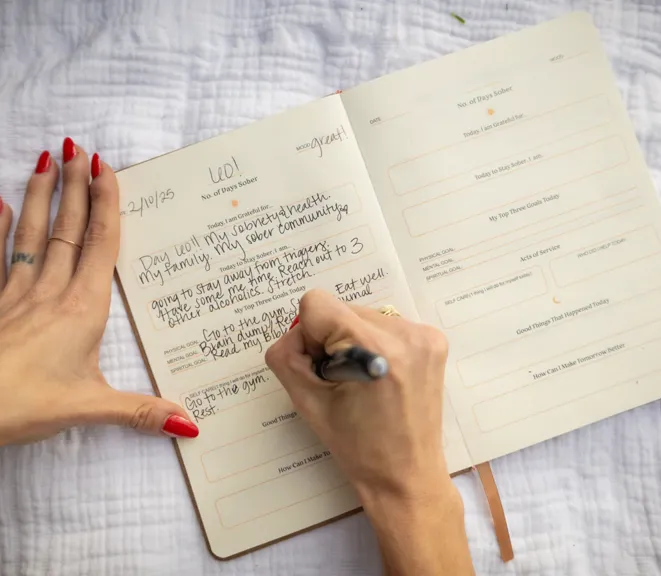 2/10/25
MOOD: great!
60!
No. of Days Sober
Today, I am Grateful for...
Day 60!! My sobriety & health.
My family. My sober community
Today to Stay Sober, I am...
going to stay away from triggers.
Have some me time. Reach out to 3
other alcoholics. Stretch.
My Top Three Goals Today
PHYSICAL GOAL: Go to the gym. Eat well.
MENTAL GOAL: Brain dump/
SPIRITUAL GOAL: Read my
SELF CARE(1 thing I will do for myself
Go to the gym.
Rest.
Good Things
How Can I Make
MOOD:
DATE:
No. of Days Sober
Today, I am Grateful for...
Today to Stay Sober, I am...
My Top Three Goals Today
PHYSICAL GOAL:
MENTAL GOAL:
SPIRITUAL GOAL:
Acts of Service
SELF CARE(1 thing I will do for myself)
WHO DID I HELP TODAY?
Good Things That Happened Today
How Can I Make Tomorrow Better